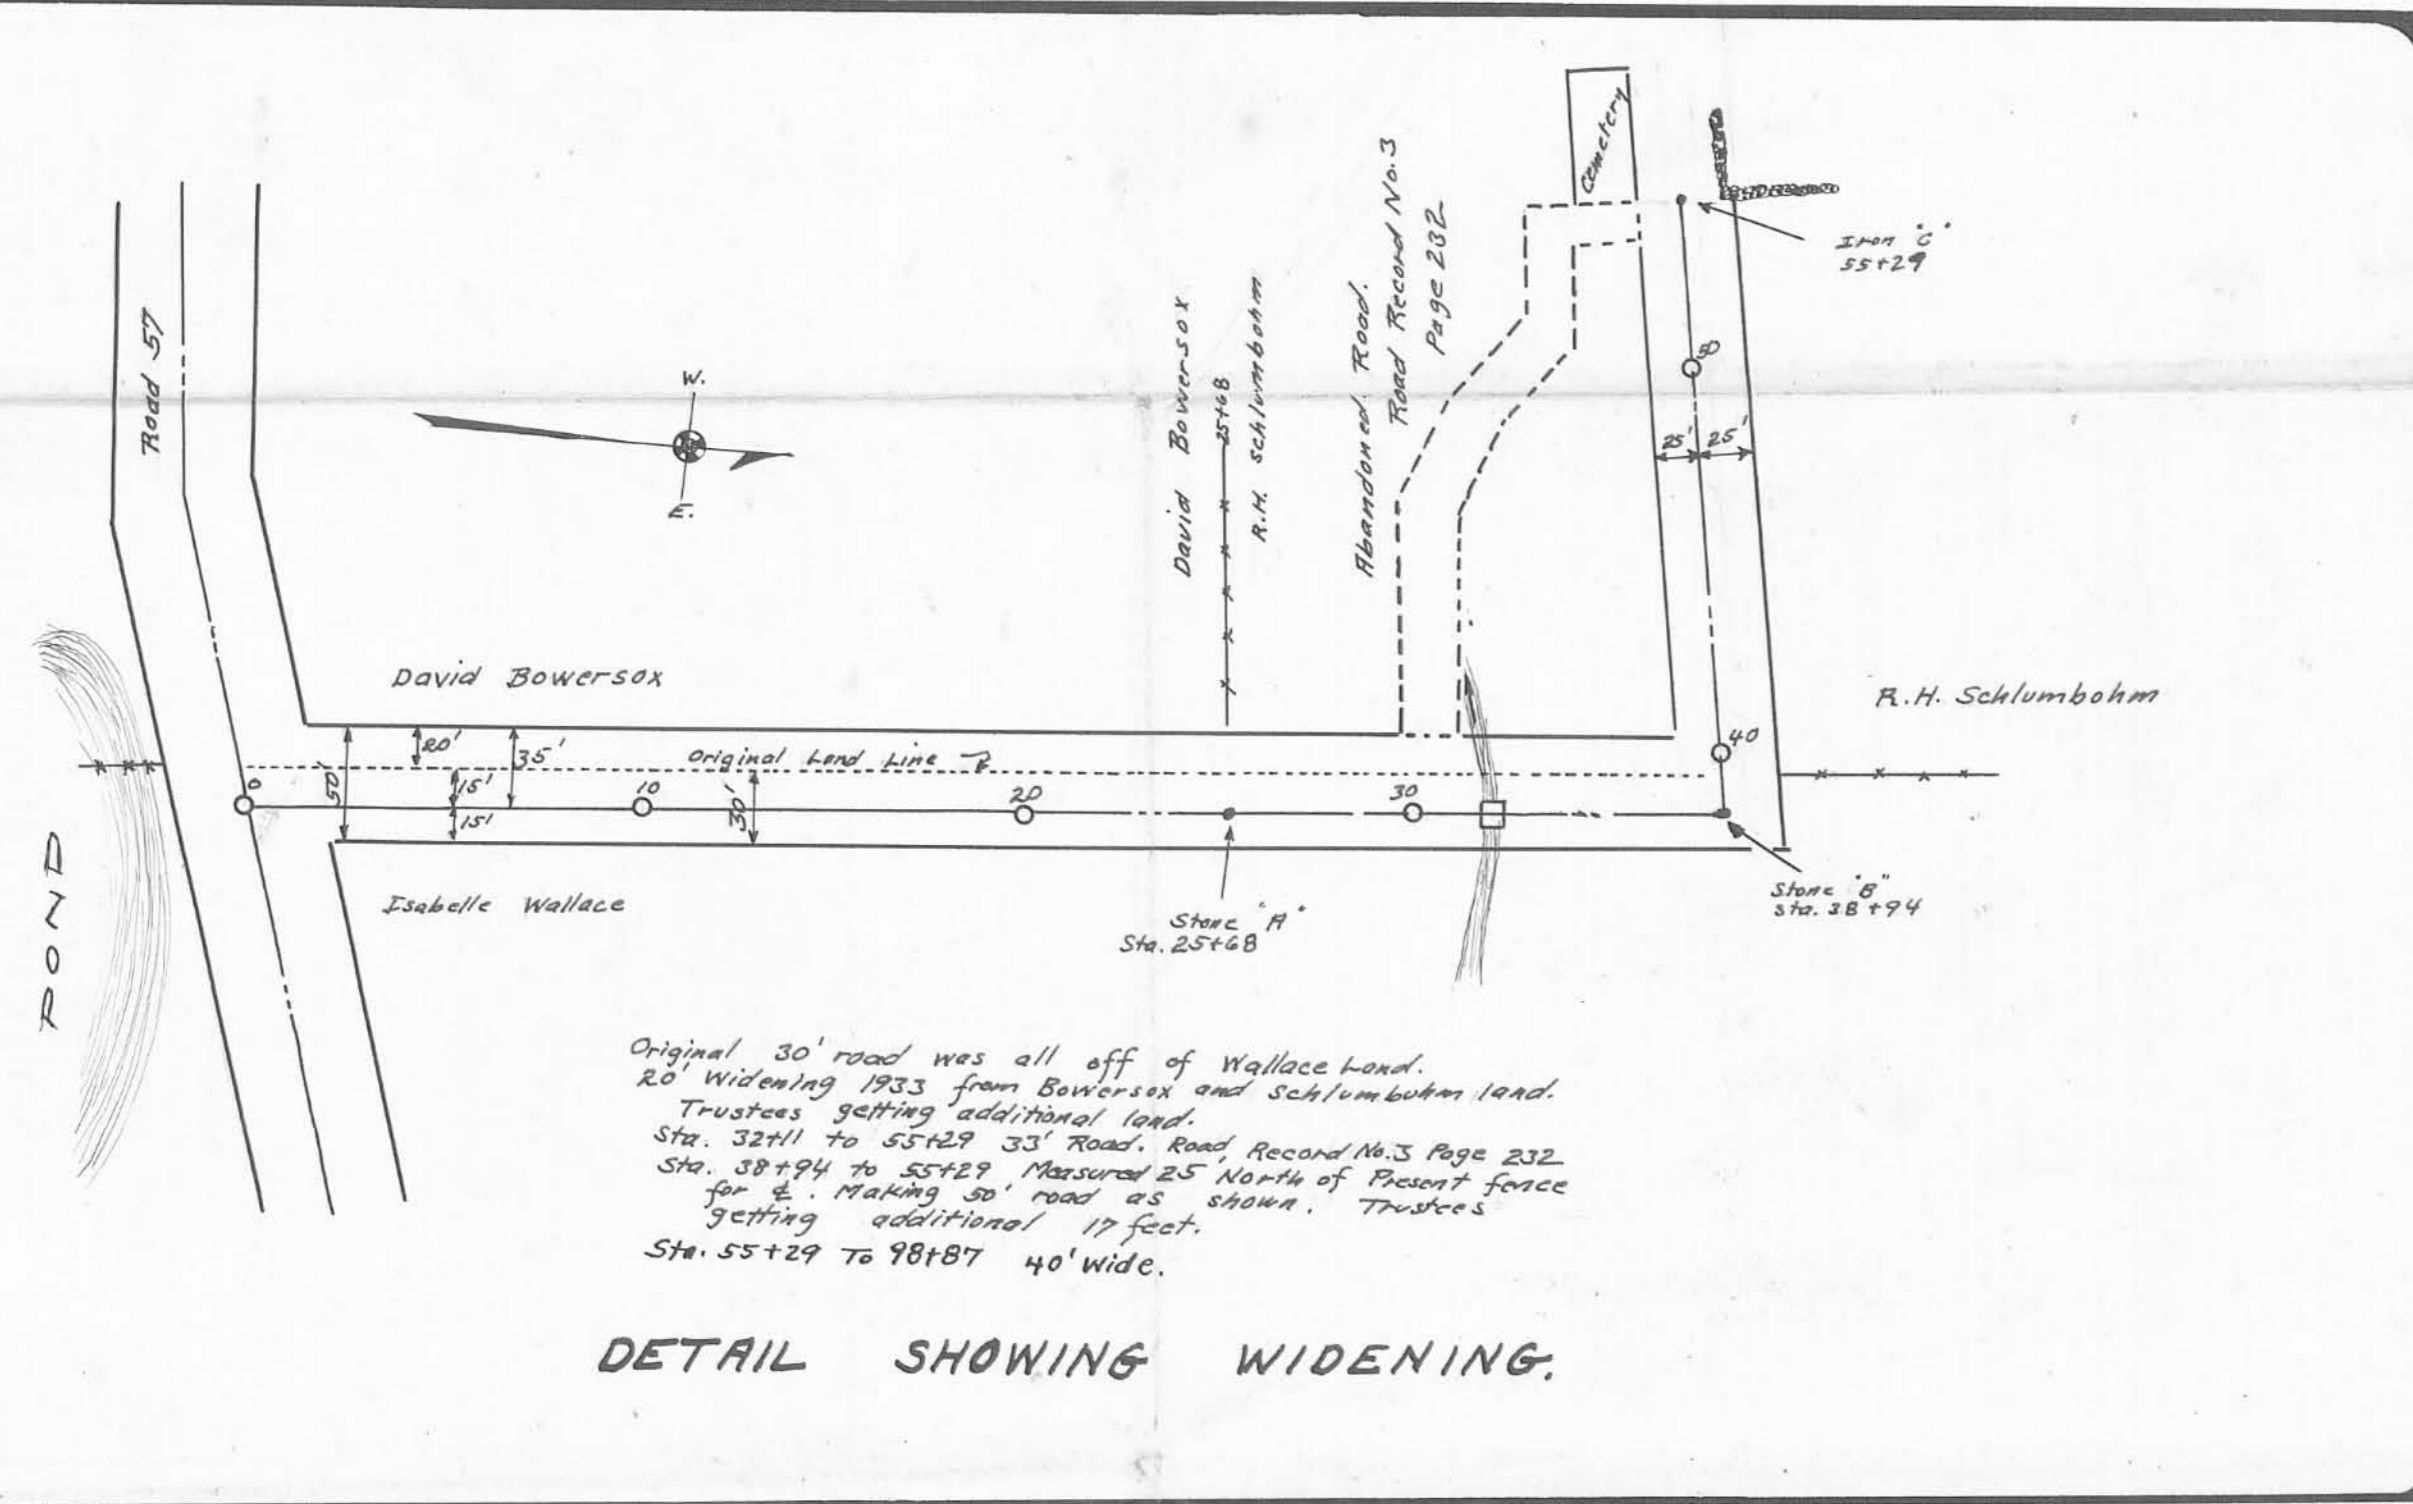 Cemetery
Iron "C"
55+29
Road 57
W.
E.
David Bowersox
25+68
R.H. Schlumbohm
Abandoned Road.
Road Record No.3
Page 232
50
25' 25'
40
R.H. Schlumbohm
David Bowersox
Original Land Line
20'
35'
50'
15'
15'
30'
0
10
20
30
POND
Isabelle Wallace
Stone "A"
Sta. 25+68
Stone "B"
Sta. 38+94
Original 30' road was all off of Wallace Land.
20' Widening 1933 from Bowersox and Schlumbohm land.
Trustees getting additional land.
Sta. 32+11 to 55+29 33' Road. Road, Record No.3 Page 232
Sta. 38+94 to 55+29 Measured 25' North of Present fence
for ℄. Making 50' road as shown. Trustees
getting additional 17 feet.
Sta. 55+29 To 98+87 40' Wide.
DETAIL SHOWING WIDENING.